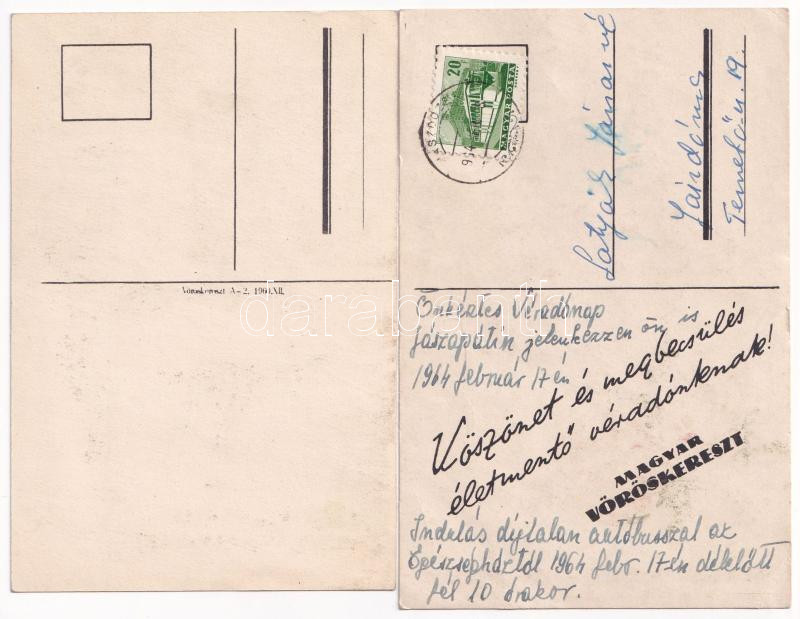 Vöröskereszt A-2. 1960.XII.
20
MAGYAR POSTA
Jászdózsa
Temető u. 19.
Önkéntes Véradónap
Jászapátin jelenkezzen ön is
1964 február 17-én
Köszönet és megbecsülés
életmentő véradónknak!
MAGYAR
VÖRÖSKERESZT
Indulás díjtalan autóbusszal az
Egészségháztól 1964 febr. 17-én délelőtt
fél 10 órakor.
darabanth